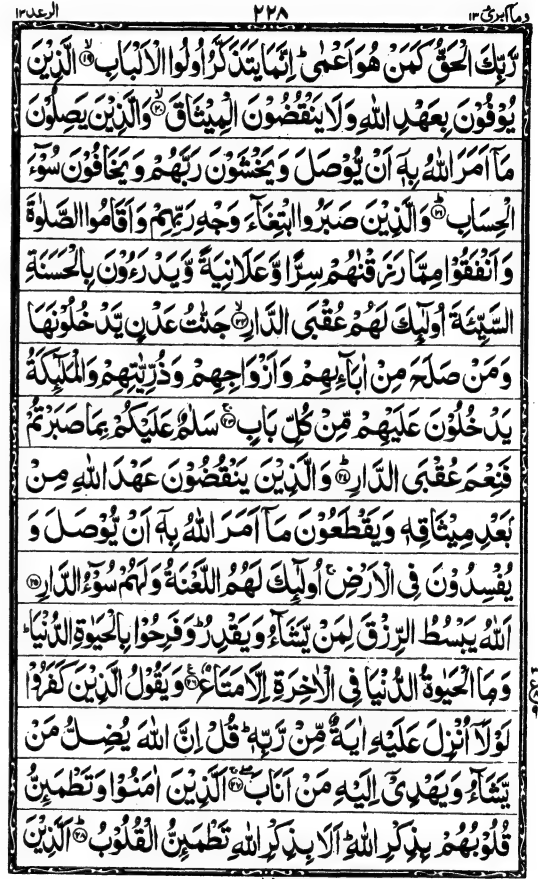 وما ابرئ ١٣ ٢٢٨ الرعد ١٣
رَّبِّكَ الْحَقُّ كَمَنْ هُوَ اَعْمٰى ؕ اِنَّمَا يَتَذَكَّرُ اُولُوا الْاَلْبَابِ ۙ‏﴿۱۹﴾ الَّذِيْنَ
يُوْفُوْنَ بِعَهْدِ اللّٰهِ وَلَا يَنْقُضُوْنَ الْمِيْثَاقَ ۙ‏﴿۲۰﴾ وَالَّذِيْنَ يَصِلُوْنَ
مَاۤ اَمَرَ اللّٰهُ بِهٖۤ اَنْ يُّوْصَلَ وَيَخْشَوْنَ رَبَّهُمْ وَيَخَافُوْنَ سُوْٓءَ
الْحِسَابِ ؕ‏﴿۲۱﴾ وَالَّذِيْنَ صَبَرُوا ابْتِغَآءَ وَجْهِ رَبِّهِمْ وَاَقَامُوا الصَّلٰوةَ
وَاَنْفَقُوْا مِمَّا رَزَقْنٰهُمْ سِرًّا وَّعَلَانِيَةً وَّيَدْرَءُوْنَ بِالْحَسَنَةِ
السَّيِّئَةَ اُولٰٓئِكَ لَهُمْ عُقْبَى الدَّارِ ۙ‏﴿۲۲﴾ جَنّٰتُ عَدْنٍ يَّدْخُلُوْنَهَا
وَمَنْ صَلَحَ مِنْ اٰبَآئِهِمْ وَاَزْوَاجِهِمْ وَذُرِّيّٰتِهِمْ وَالْمَلٰٓئِكَةُ
يَدْخُلُوْنَ عَلَيْهِمْ مِّنْ كُلِّ بَابٍ ۚ‏﴿۲۳﴾ سَلٰمٌ عَلَيْكُمْ بِمَا صَبَرْتُمْ
فَنِعْمَ عُقْبَى الدَّارِ ؕ‏﴿۲۴﴾ وَالَّذِيْنَ يَنْقُضُوْنَ عَهْدَ اللّٰهِ مِنْۢ
بَعْدِ مِيْثَاقِهٖ وَيَقْطَعُوْنَ مَاۤ اَمَرَ اللّٰهُ بِهٖۤ اَنْ يُّوْصَلَ وَ
يُفْسِدُوْنَ فِى الْاَرْضِ ۙ اُولٰٓئِكَ لَهُمُ اللَّعْنَةُ وَلَهُمْ سُوْٓءُ الدَّارِ‏﴿۲۵﴾
اَللّٰهُ يَبْسُطُ الرِّزْقَ لِمَنْ يَّشَآءُ وَيَقْدِرُ ؕ وَفَرِحُوْا بِالْحَيٰوةِ الدُّنْيَا ؕ
وَمَا الْحَيٰوةُ الدُّنْيَا فِى الْاٰخِرَةِ اِلَّا مَتَاعٌ ‏﴿۲۶﴾ وَيَقُوْلُ الَّذِيْنَ كَفَرُوْا
لَوْلَاۤ اُنْزِلَ عَلَيْهِ اٰيَةٌ مِّنْ رَّبِّهٖ ؕ قُلْ اِنَّ اللّٰهَ يُضِلُّ مَنْ
يَّشَآءُ وَيَهْدِىْۤ اِلَيْهِ مَنْ اَنَابَ ۖۚ‏﴿۲۷﴾ اَلَّذِيْنَ اٰمَنُوْا وَتَطْمَئِنُّ
قُلُوْبُهُمْ بِذِكْرِ اللّٰهِ ؕ اَلَا بِذِكْرِ اللّٰهِ تَطْمَئِنُّ الْقُلُوْبُ ؕ‏﴿۲۸﴾ اَلَّذِيْنَ